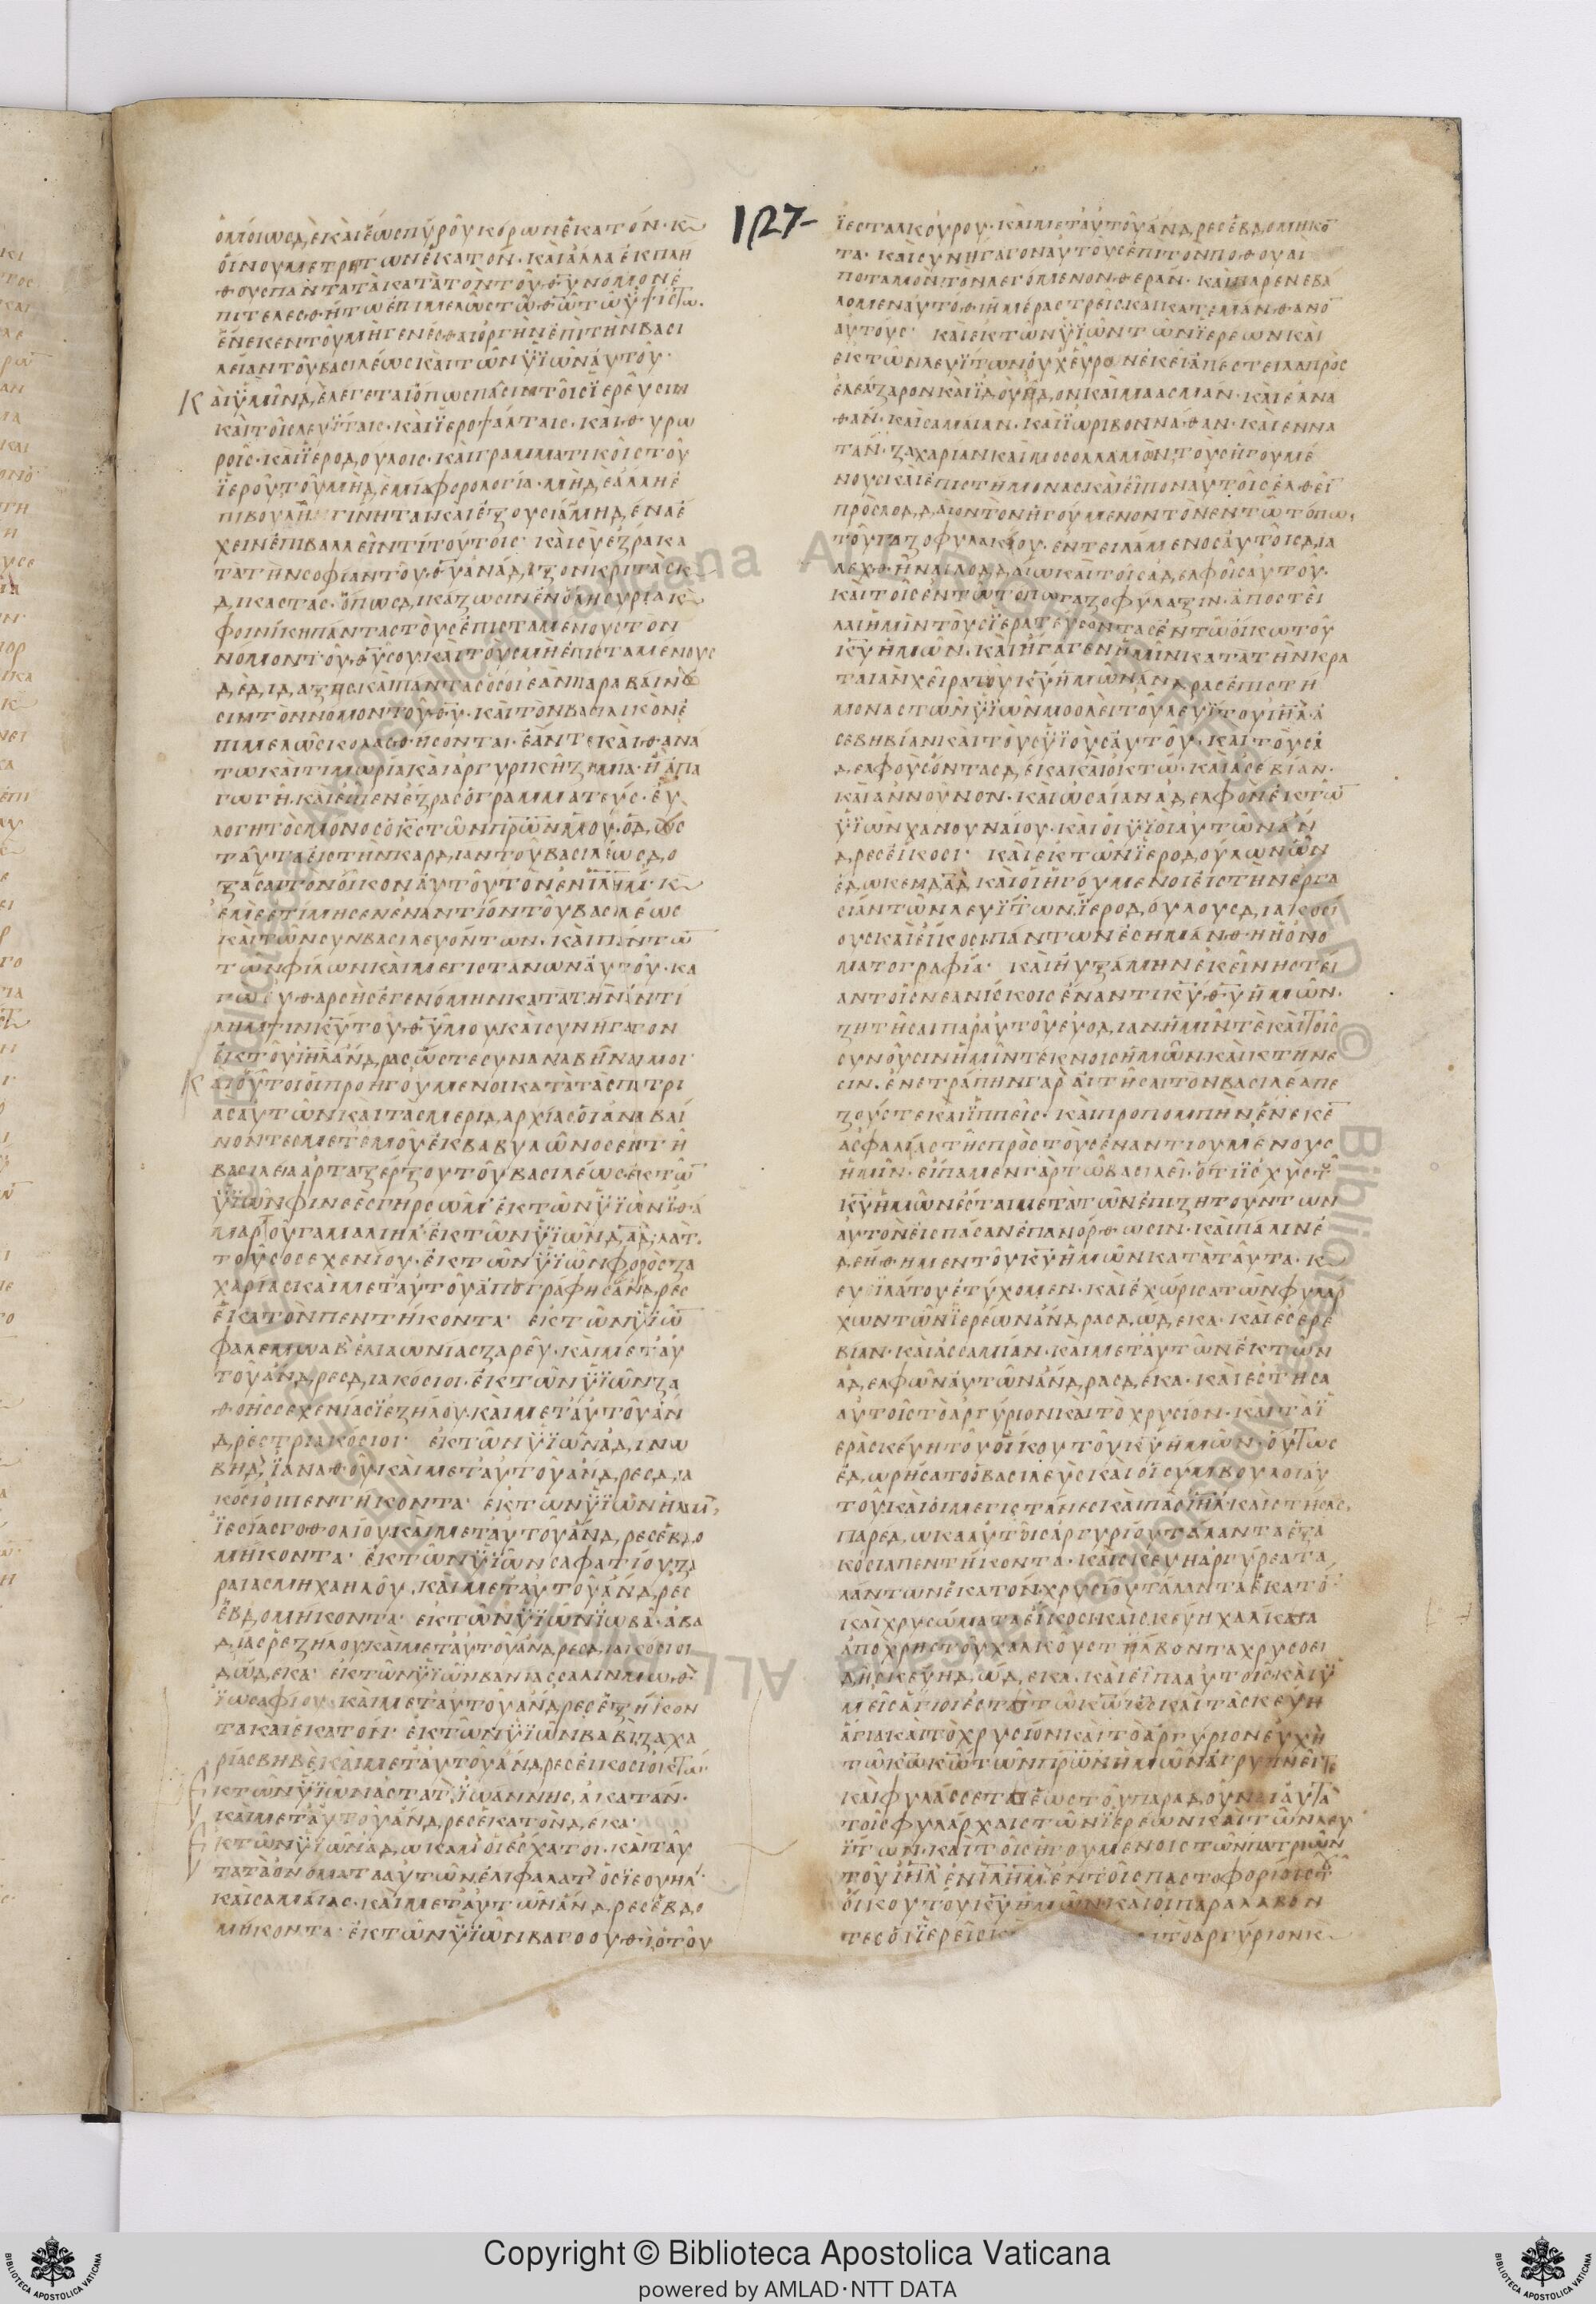 127
ΟΜΟΙΩΣΔΕΚΑΙΕΩΣΠΥΡΟΥΚΟΡΩΝΕΚΑΤΟΝ·Κ
ΟΙΝΟΥΜΕΤΡΗΤΩΝΕΚΑΤΟΝ·ΚΑΙΑΛΛΑΕΚΠΛΗ
ΘΟΥΣΠΑΝΤΑΤΑΚΑΤΑΤΟΝΤΟΥΘΥΝΟΜΟΝΕ
ΠΙΤΕΛΕΣΘΗΤΩΕΠΙΜΕΛΩΣΤΩΘΩΤΩΥΨΙΣΤΩ·
ΕΝΕΚΕΝΤΟΥΜΗΓΕΝΕΣΘΑΙΟΡΓΗΝΕΠΙΤΗΝΒΑΣΙ
ΛΕΙΑΝΤΟΥΒΑΣΙΛΕΩΣΚΑΙΤΩΝΥΙΩΝΑΥΤΟΥ·
ΚΑΙΥΜΙΝΔΕΛΕΓΕΤΑΙΟΠΩΣΠΑΣΙΝΤΟΙΣΙΕΡΕΥΣΙΝ
ΚΑΙΤΟΙΣΛΕΥΙΤΑΙΣ·ΚΑΙΙΕΡΟΨΑΛΤΑΙΣ·ΚΑΙΘΥΡΩ
ΡΟΙΣ·ΚΑΙΙΕΡΟΔΟΥΛΟΙΣ·ΚΑΙΓΡΑΜΜΑΤΙΚΟΙΣΤΟΥ
ΙΕΡΟΥΤΟΥΜΗΔΕΜΙΑΦΟΡΟΛΟΓΙΑ·ΜΗΔΕΑΛΛΗΕ
ΠΙΒΟΥΛΗΓΙΝΗΤΑΙΚΑΙΕΞΟΥΣΙΑΜΗΔΕΝΑΕ
ΧΕΙΝΕΠΙΒΑΛΛΕΙΝΤΙΤΟΥΤΟΙΣ·ΚΑΙΣΥΕΖΡΑΚΑ
ΤΑΤΗΝΣΟΦΙΑΝΤΟΥΘΥΑΝΑΔΙΞΟΝΚΡΙΤΑΣΚ
ΔΙΚΑΣΤΑΣ·ΟΠΩΣΔΙΚΑΖΩΣΙΝΕΝΟΛΗΣΥΡΙΑΚ
ΦΟΙΝΙΚΗΠΑΝΤΑΣΤΟΥΣΕΠΙΣΤΑΜΕΝΟΥΣΤΟΝ
ΝΟΜΟΝΤΟΥΘΥΣΟΥ·ΚΑΙΤΟΥΣΜΗΕΠΙΣΤΑΜΕΝΟΥΣ
ΔΕΔΙΔΑΞΗΣΚΑΙΠΑΝΤΑΣΟΣΟΙΕΑΝΠΑΡΑΒΑΙΝΟΥ
ΣΙΝΤΟΝΝΟΜΟΝΤΟΥΘΥ·ΚΑΙΤΟΝΒΑΣΙΛΙΚΟΝΕ
ΠΙΜΕΛΩΣΚΟΛΑΣΘΗΣΟΝΤΑΙ·ΕΑΝΤΕΚΑΙΘΑΝΑ
ΤΩΚΑΙΤΙΜΩΡΙΑΚΑΙΑΡΓΥΡΙΚΗΖΗΜΙΑ·ΗΑΠΑ
ΓΩΓΗ·ΚΑΙΕΙΠΕΝΕΖΡΑΣΟΓΡΑΜΜΑΤΕΥΣ·ΕΥ
ΛΟΓΗΤΟΣΜΟΝΟΣΟΚΣΤΩΝΠΡΩΝΜΟΥ·ΟΔΟΥΣ
ΤΑΥΤΑΕΙΣΤΗΝΚΑΡΔΙΑΝΤΟΥΒΑΣΙΛΕΩΣΔΟ
ΞΑΣΑΙΤΟΝΟΙΚΟΝΑΥΤΟΥΤΟΝΕΝΙΛΗΜ·Κ
ΕΜΕΕΤΙΜΗΣΕΝΕΝΑΝΤΙΟΝΤΟΥΒΑΣΙΛΕΩΣ
ΚΑΙΤΩΝΣΥΝΒΑΣΙΛΕΥΟΝΤΩΝ·ΚΑΙΠΑΝΤΩ
ΤΩΝΦΙΛΩΝΚΑΙΜΕΓΙΣΤΑΝΩΝΑΥΤΟΥ·ΚΑ
ΓΩΕΥΘΑΡΣΗΣΕΓΕΝΟΜΗΝΚΑΤΑΤΗΝΑΝΤΙ
ΛΗΜΨΙΝΚΥΤΟΥΘΥΜΟΥΚΑΙΣΥΝΗΓΑΓΟΝ
ΕΚΤΟΥΙΗΛΑΝΔΡΑΣΩΣΤΕΣΥΝΑΝΑΒΗΝΑΙΜΟΙ·
ΚΑΙΟΥΤΟΙΟΙΠΡΟΗΓΟΥΜΕΝΟΙΚΑΤΑΤΑΣΠΑΤΡΙ
ΑΣΑΥΤΩΝΚΑΙΤΑΣΜΕΡΙΔΑΡΧΙΑΣΟΙΑΝΑΒΑΙ
ΝΟΝΤΕΣΜΕΤΕΜΟΥΕΚΒΑΒΥΛΩΝΟΣΕΝΤΗ
ΒΑΣΙΛΕΙΑΑΡΤΑΞΕΡΞΟΥΤΟΥΒΑΣΙΛΕΩΣ·ΕΚΤΩ
ΥΙΩΝΦΙΝΕΕΣΓΗΡΣΩΜ·ΕΚΤΩΝΥΙΩΝΙΘΑ
ΜΑΡΤΟΥΓΑΜΑΛΙΗΛ·ΕΚΤΩΝΥΙΩΝΔΑΔ·ΛΑΤ
ΤΟΥΣΟΣΕΧΕΝΙΟΥ·ΕΚΤΩΝΥΙΩΝΦΟΡΟΣΖΑ
ΧΑΡΙΑΣΚΑΙΜΕΤΑΥΤΟΥΑΠΟΓΡΑΦΗΣΑΝΔΡΕΣ
ΕΚΑΤΟΝΠΕΝΤΗΚΟΝΤΑ·ΕΚΤΩΝΥΙΩ
ΦΑΛΕΜΩΑΒ·ΕΛΙΑΩΝΙΑΣΖΑΡΕΟΥ·ΚΑΙΜΕΤΑΥ
ΤΟΥΑΝΔΡΕΣΔΙΑΚΟΣΙΟΙ·ΕΚΤΩΝΥΙΩΝΖΑ
ΘΟΗΣΣΕΧΕΝΙΑΣΙΕΖΗΛΟΥ·ΚΑΙΜΕΤΑΥΤΟΥΑΝ
ΔΡΕΣΤΡΙΑΚΟΣΙΟΙ·ΕΚΤΩΝΥΙΩΝΑΔΙΝΩ
ΒΗΔΙΑΝΑΘΟΥΚΑΙΜΕΤΑΥΤΟΥΑΝΔΡΕΣΔΙΑ
ΚΟΣΙΟΙΠΕΝΤΗΚΟΝΤΑ·ΕΚΤΩΝΥΙΩΝΗΛΑΜ
ΙΕΣΙΑΣΓΟΘΟΛΙΟΥΚΑΙΜΕΤΑΥΤΟΥΑΝΔΡΕΣΕΒΔΟ
ΜΗΚΟΝΤΑ·ΕΚΤΩΝΥΙΩΝΣΑΦΑΤΙΟΥΖΑ
ΡΑΙΑΣΜΗΧΑΗΛΟΥ·ΚΑΙΜΕΤΑΥΤΟΥΑΝΔΡΕΣ
ΕΒΔΟΜΗΚΟΝΤΑ·ΕΚΤΩΝΥΙΩΝΙΩΒΑ·ΑΒΑ
ΔΙΑΣΡΕΖΗΛΟΥΚΑΙΜΕΤΑΥΤΟΥΑΝΔΡΕΣΔΙΑΚΟΣΙΟΙ
ΔΩΔΕΚΑ·ΕΚΤΩΝΥΙΩΝΒΑΝΙΑΣΣΑΛΙΝΜΩΘ
ΙΩΣΑΦΙΟΥ·ΚΑΙΜΕΤΑΥΤΟΥΑΝΔΡΕΣΕΞΗΚΟΝ
ΤΑΚΑΙΕΚΑΤΟΝ·ΕΚΤΩΝΥΙΩΝΒΑΒΙΖΑΧΑ
ΡΙΑΣΒΗΒΕΚΑΙΜΕΤΑΥΤΟΥΑΝΔΡΕΣΕΙΚΟΣΙΟΚΤΩ·
ΕΚΤΩΝΥΙΩΝΑΣΤΑΤΙΩΑΝΝΗΣΑΚΑΤΑΝ·
ΚΑΙΜΕΤΑΥΤΟΥΑΝΔΡΕΣΕΚΑΤΟΝΔΕΚΑ·
ΕΚΤΩΝΥΙΩΝΑΔΩΚΑΜΟΙΕΣΧΑΤΟΙ·ΚΑΙΤΑΥ
ΤΑΤΑΟΝΟΜΑΤΑΑΥΤΩΝΕΛΙΦΑΛΑΤΟΣΙΕΟΥΗΛ·
ΚΑΙΣΑΜΑΙΑΣ·ΚΑΙΜΕΤΑΥΤΩΝΑΝΔΡΕΣΕΒΔΟ
ΜΗΚΟΝΤΑ·ΕΚΤΩΝΥΙΩΝΒΑΓΟΟΥΘΙΟΤΟΥ
ΙΕΣΤΑΛΚΟΥΡΟΥ·ΚΑΙΜΕΤΑΥΤΟΥΑΝΔΡΕΣΕΒΔΟΜΗΚΟ
ΤΑ·ΚΑΙΣΥΝΗΓΑΓΟΝΑΥΤΟΥΣΕΠΙΤΟΝΠΟΘΟΥΑΙ
ΠΟΤΑΜΟΝΤΟΝΛΕΓΟΜΕΝΟΝΘΕΡΑΝ·ΚΑΙΠΑΡΕΝΕΒΑ
ΛΟΜΕΝΑΥΤΟΘΙΗΜΕΡΑΣΤΡΕΙΣΚΑΙΚΑΤΕΜΑΝΘΑΝΟ
ΑΥΤΟΥΣ·ΚΑΙΕΚΤΩΝΥΙΩΝΤΩΝΙΕΡΕΩΝΚΑΙ
ΕΚΤΩΝΛΕΥΙΤΩΝΟΥΧΕΥΡΟΝΕΚΕΙΑΠΕΣΤΕΙΛΑΠΡΟΣ
ΕΛΕΑΖΑΡΟΝΚΑΙΙΔΟΥΗΔΟΝΚΑΙΜΑΑΣΜΑΝ·ΚΑΙΕΛΝΑ
ΘΑΝ·ΚΑΙΣΑΜΑΙΑΝ·ΚΑΙΙΩΡΙΒΟΝΝΑΘΑΝ·ΚΑΙΕΝΝΑ
ΤΑΝ·ΖΑΧΑΡΙΑΝΚΑΙΜΟΣΟΛΛΑΜΟΝΤΟΥΣΗΓΟΥΜΕ
ΝΟΥΣΚΑΙΕΠΙΣΤΗΜΟΝΑΣΚΑΙΕΙΠΟΝΑΥΤΟΙΣΕΛΘΕΙ
ΠΡΟΣΛΟΔΔΑΙΟΝΤΟΝΗΓΟΥΜΕΝΟΝΤΟΝΕΝΤΩΤΟΠΩ
ΤΟΥΓΑΖΟΦΥΛΑΚΙΟΥ·ΕΝΤΕΙΛΑΜΕΝΟΣΑΥΤΟΙΣΔΙΑ
ΛΕΧΘΗΝΑΙΛΟΔΔΑΙΩΚΑΙΤΟΙΣΑΔΕΛΦΟΙΣΑΥΤΟΥ·
ΚΑΙΤΟΙΣΕΝΤΩΤΟΠΩΓΑΖΟΦΥΛΑΞΙΝ·ΑΠΟΣΤΕΙ
ΛΑΙΗΜΙΝΤΟΥΣΙΕΡΑΤΕΥΣΟΝΤΑΣΕΝΤΩΟΙΚΩΤΟΥ
ΚΥΗΜΩΝ·ΚΑΙΗΓΑΓΕΝΗΜΙΝΚΑΤΑΤΗΝΚΡΑ
ΤΑΙΑΝΧΕΙΡΑΤΟΥΚΥΗΜΩΝΑΝΔΡΑΣΕΠΙΣΤΗ
ΜΟΝΑΣΤΩΝΥΙΩΝΜΟΟΛΕΙΤΟΥΛΕΥΙΤΟΥΙΗΛ·Α
ΣΕΒΗΒΙΑΝΚΑΙΤΟΥΣΥΙΟΥΣΑΥΤΟΥ·ΚΑΙΤΟΥΣΑ
ΔΕΛΦΟΥΣΟΝΤΑΣΔΕΚΑΚΑΙΟΚΤΩ·ΚΑΙΑΣΕΒΙΑΝ·
ΚΑΙΑΝΝΟΥΝΟΝ·ΚΑΙΩΣΑΙΑΝΑΔΕΛΦΟΝΕΚΤΩ
ΥΙΩΝΧΑΝΟΥΝΑΙΟΥ·ΚΑΙΟΙΥΙΟΙΑΥΤΩΝΑΝ
ΔΡΕΣΕΙΚΟΣΙ·ΚΑΙΕΚΤΩΝΙΕΡΟΔΟΥΛΩΝΩΝ
ΕΔΩΚΕΝΔΑΔΚΑΙΟΙΗΓΟΥΜΕΝΟΙΕΙΣΤΗΝΕΡΓΑ
ΣΙΑΝΤΩΝΛΕΥΙΤΩΝΙΕΡΟΔΟΥΛΟΥΣΔΙΑΚΟΣΙ
ΟΥΣΚΑΙΕΙΚΟΣΙΠΑΝΤΩΝΕΣΗΜΑΝΘΗΗΟΝΟ
ΜΑΤΟΓΡΑΦΙΑ·ΚΑΙΗΥΞΑΜΗΝΕΚΕΙΝΗΣΤΕΙ
ΑΝΤΟΙΣΝΕΑΝΙΣΚΟΙΣΕΝΑΝΤΙΚΥΘΥΗΜΩΝ·
ΖΗΤΗΣΑΙΠΑΡΑΥΤΟΥΕΥΟΔΙΑΝΗΜΙΝΤΕΚΑΙΤΟΙΣ
ΣΥΝΟΥΣΙΝΗΜΙΝΤΕΚΝΟΙΣΗΜΩΝΚΑΙΚΤΗΝΕ
ΣΙΝ·ΕΝΕΤΡΑΠΗΝΓΑΡΑΙΤΗΣΑΙΤΟΝΒΑΣΙΛΕΑΠΕ
ΖΟΥΣΤΕΚΑΙΙΠΠΕΙΣ·ΚΑΙΠΡΟΠΟΜΠΗΝΕΝΕΚΕ
ΑΣΦΑΛΙΑΣΤΗΣΠΡΟΣΤΟΥΣΕΝΑΝΤΙΟΥΜΕΝΟΥΣ
ΗΜΙΝ·ΕΙΠΑΜΕΝΓΑΡΤΩΒΑΣΙΛΕΙ·ΟΤΙΙΣΧΥΣΤΟΥ
ΚΥΗΜΩΝΕΣΤΑΙΜΕΤΑΤΩΝΕΠΙΖΗΤΟΥΝΤΩΝ
ΑΥΤΟΝΕΙΣΠΑΣΑΝΕΠΑΝΟΡΘΩΣΙΝ·ΚΑΙΠΑΛΙΝΕ
ΔΕΗΘΗΜΕΝΤΟΥΚΥΗΜΩΝΚΑΤΑΤΑΥΤΑ·Κ
ΕΥΙΛΑΤΟΥΕΤΥΧΟΜΕΝ·ΚΑΙΕΧΩΡΙΣΑΤΩΝΦΥΛΑΡ
ΧΩΝΤΩΝΙΕΡΕΩΝΑΝΔΡΑΣΔΩΔΕΚΑ·ΚΑΙΕΣΕΡΕ
ΒΙΑΝ·ΚΑΙΑΣΣΑΜΙΑΝ·ΚΑΙΜΕΤΑΥΤΩΝΕΚΤΩΝ
ΑΔΕΛΦΩΝΑΥΤΩΝΑΝΔΡΑΣΔΕΚΑ·ΚΑΙΕΣΤΗΣΑ
ΑΥΤΟΙΣΤΟΑΡΓΥΡΙΟΝΚΑΙΤΟΧΡΥΣΙΟΝ·ΚΑΙΤΑΙ
ΕΡΑΣΚΕΥΗΤΟΥΟΙΚΟΥΤΟΥΚΥΗΜΩΝ·ΟΥΤΩΣ
ΕΔΩΡΗΣΑΤΟΟΒΑΣΙΛΕΥΣΚΑΙΟΙΣΥΜΒΟΥΛΟΙΑΥ
ΤΟΥΚΑΙΟΙΜΕΓΙΣΤΑΝΕΣΚΑΙΠΑΣΙΗΛ·ΚΑΙΣΤΗΣΑΣ
ΠΑΡΕΔΩΚΑΑΥΤΟΙΣΑΡΓΥΡΙΟΥΤΑΛΑΝΤΑΕΞΑ
ΚΟΣΙΑΠΕΝΤΗΚΟΝΤΑ·ΚΑΙΣΚΕΥΗΑΡΓΥΡΕΑΤΑ
ΛΑΝΤΩΝΕΚΑΤΟΝΧΡΥΣΙΟΥΤΑΛΑΝΤΑΕΚΑΤΟ
ΚΑΙΧΡΥΣΩΜΑΤΑΕΙΚΟΣΙΚΑΙΣΚΕΥΗΧΑΛΚΑΙΑ
ΑΠΟΧΡΗΣΤΟΥΧΑΛΚΟΥΣΤΙΛΒΟΝΤΑΧΡΥΣΟΕΙ
ΔΗΣΚΕΥΗΔΩΔΕΚΑ·ΚΑΙΕΙΠΑΑΥΤΟΙΣΚΑΙΥ
ΜΕΙΣΑΓΙΟΙΕΣΤΑΙΤΩΚΩΚΑΙΤΑΣΚΕΥΗ
ΑΓΙΑΚΑΙΤΟΧΡΥΣΙΟΝΚΑΙΤΟΑΡΓΥΡΙΟΝΕΥΧΗ
ΤΩΚΩΚΩΤΩΝΠΡΩΝΗΜΩΝΑΓΡΥΠΝΕΙΤΕ
ΚΑΙΦΥΛΑΣΣΕΤΑΙΕΩΣΤΟΥΠΑΡΑΔΟΥΝΑΙΑΥΤΑ
ΤΟΙΣΦΥΛΑΡΧΑΙΣΤΩΝΙΕΡΕΩΝΚΑΙΤΩΝΛΕΥ
ΙΤΩΝ·ΚΑΙΤΟΙΣΗΓΟΥΜΕΝΟΙΣΤΩΝΠΑΤΡΙΩΝ
ΤΟΥΙΗΛΕΝΙΛΗΜΕΝΤΟΙΣΠΑΣΤΟΦΟΡΙΟΙΣΤΟΥ
ΟΙΚΟΥΤΟΥΚΥΗΜΩΝ·ΚΑΙΟΙΠΑΡΑΛΑΒΟΝ
ΤΕΣΟΙΙΕΡΕΙΣΚ ΙΤΟΑΡΓΥΡΙΟΝΚ
Copyright © Biblioteca Apostolica Vaticana
powered by AMLAD·NTT DATA